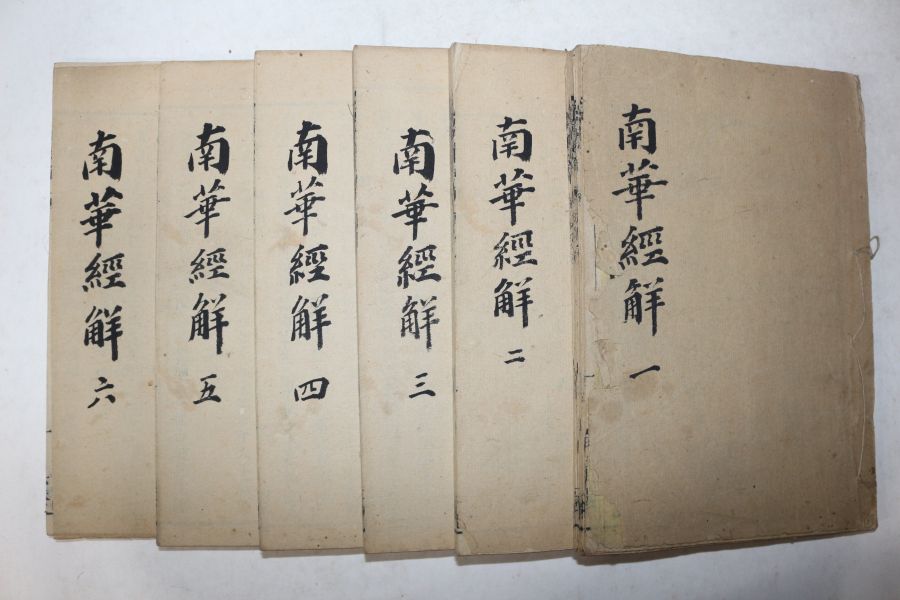 南華經觧 一
南華經觧 二
南華經觧 三
南華經觧 四
南華經觧 五
南華經觧 六